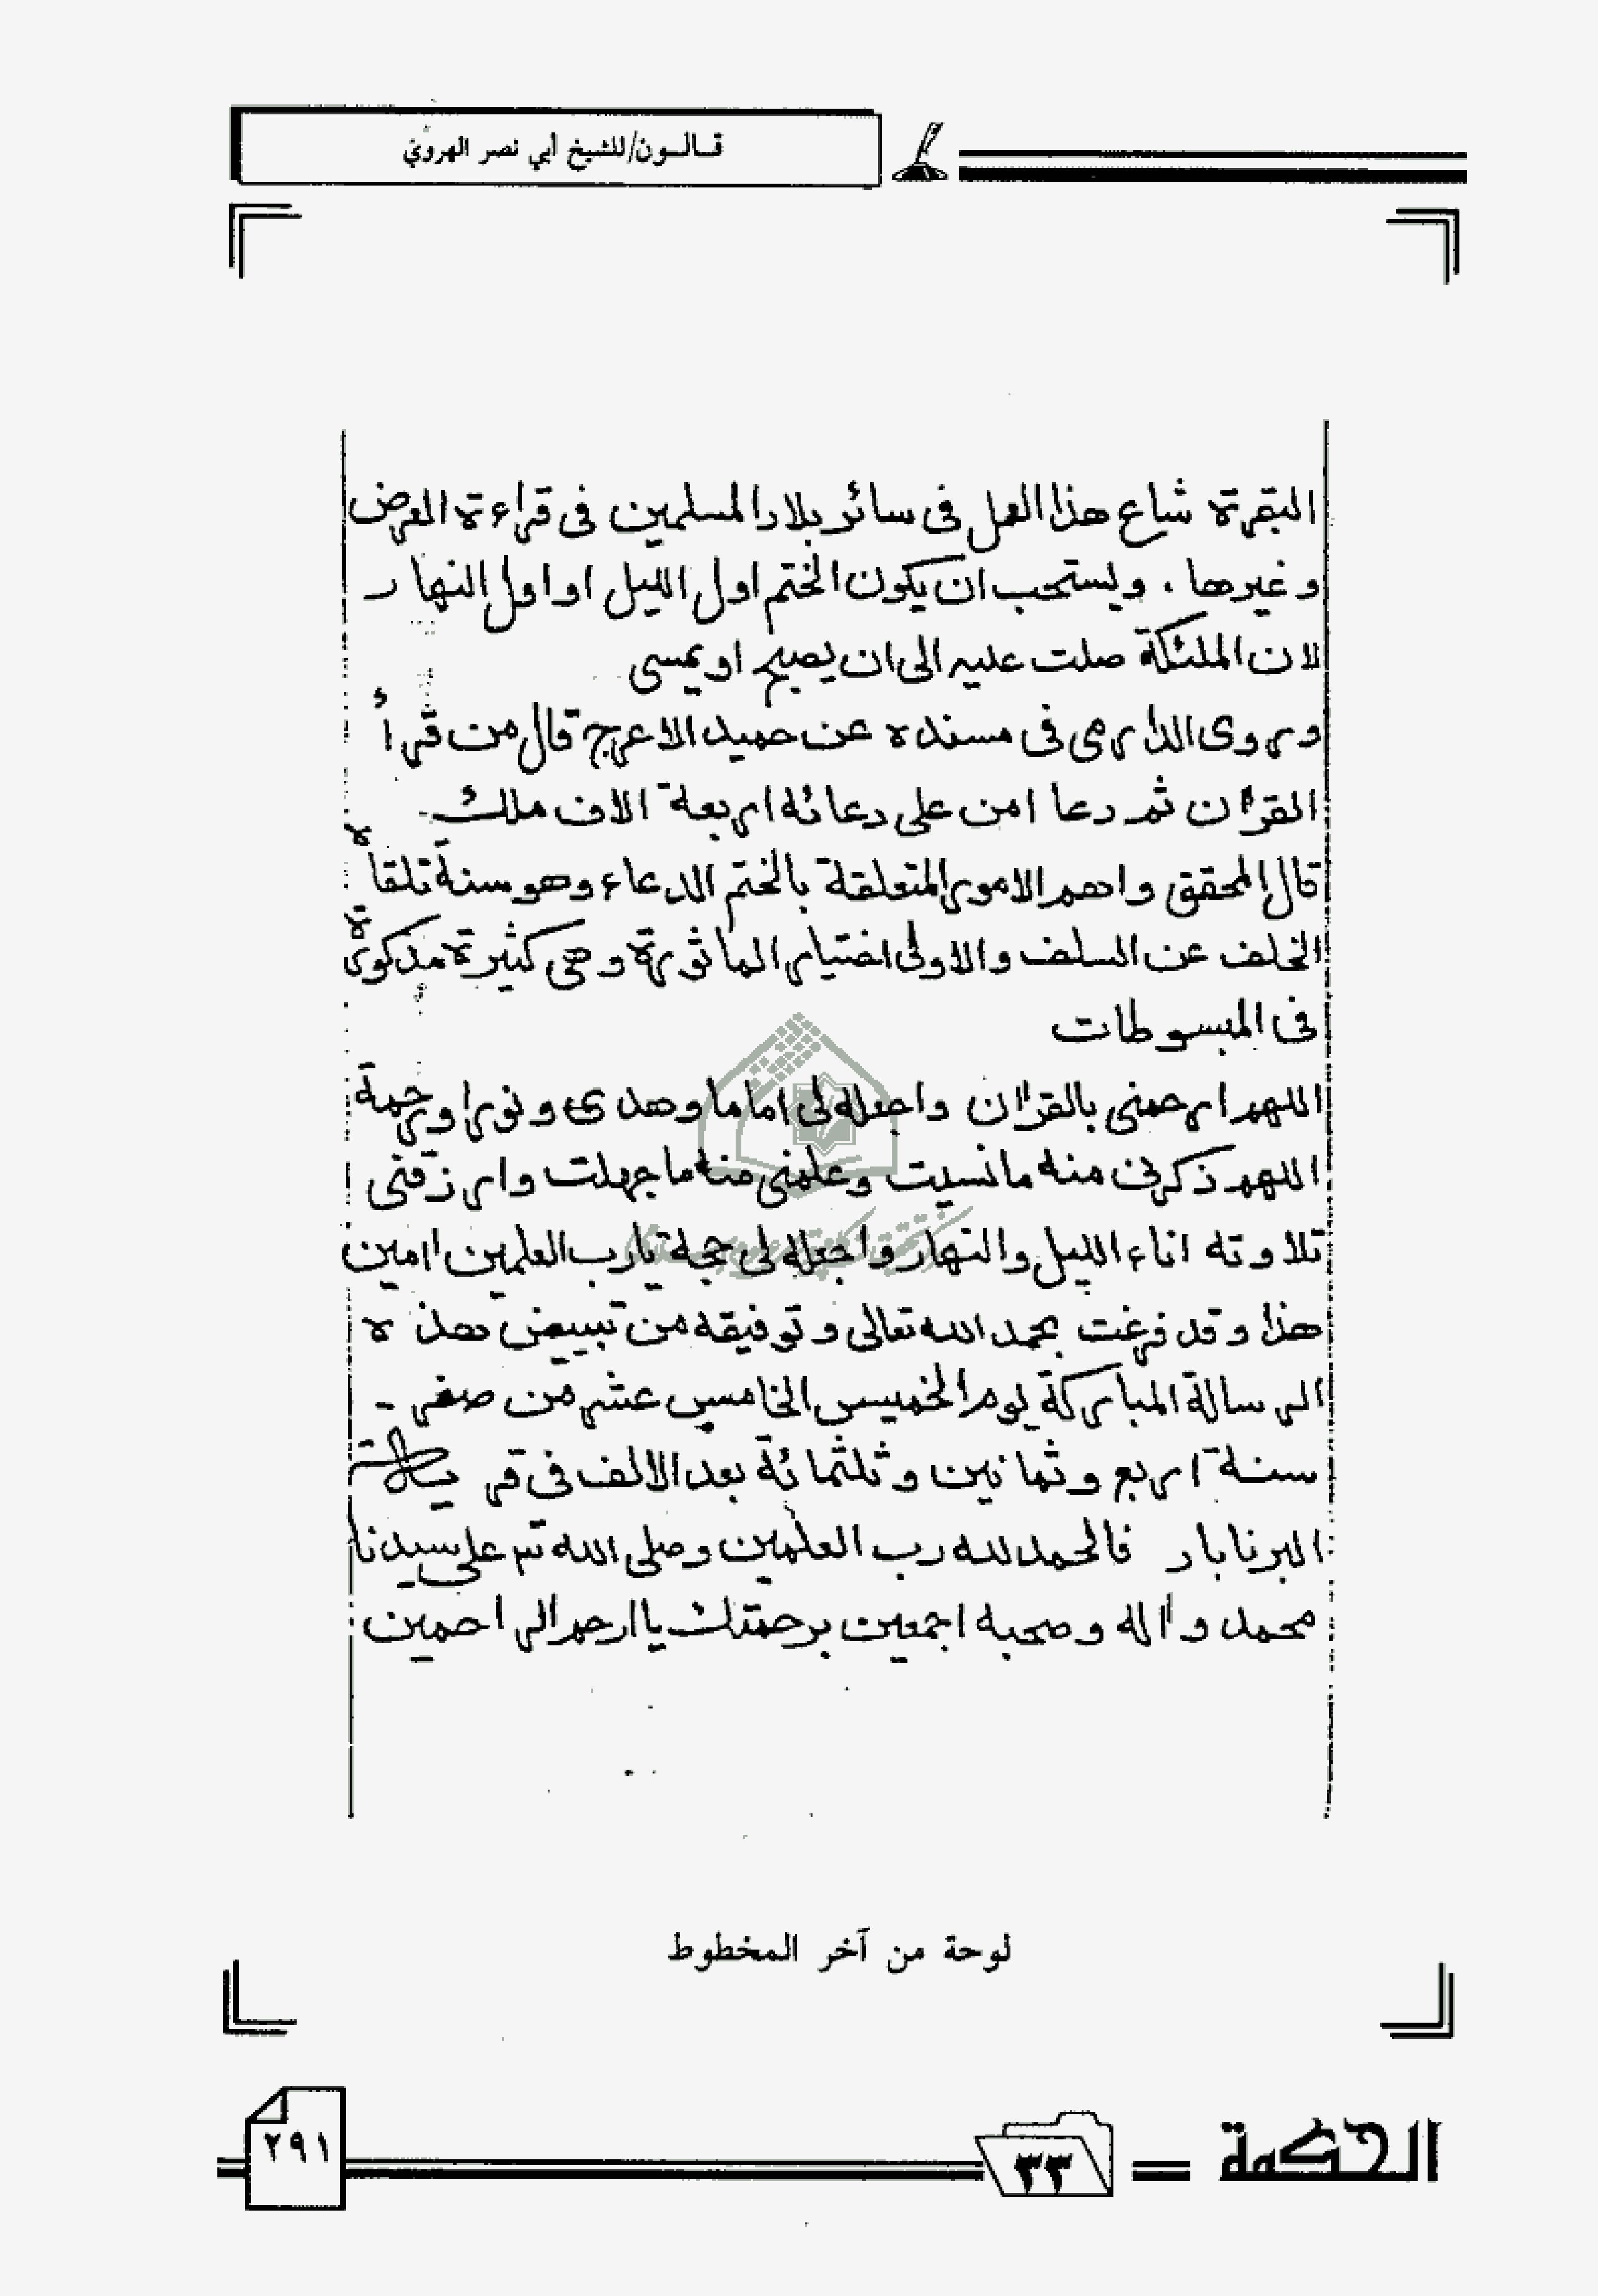 قالون/للشيخ أبي نصر الهرويّ
البقرة شاع هذا العمل فى سائر بلاد المسلمين فى قراءة العرض
وغيرها . ويستحب ان يكون الختم اول الليل او اول النهار
لان الملئكة صلت عليه الى ان يصبح او يمسى
وروى الدارمى فى مسنده عن حميد الاعرج قال من قرأ
القران ثم دعا امن على دعائه اربعة الاف ملك
قال المحقق واهم الامور المتعلقة بالختم الدعاء وهو سنة تلقاه
الخلف عن السلف والاولى اختيار الماثورة وهى كثيرة مذكورة
فى المبسوطات
اللهم ارحمنى بالقران واجعله لى اماما وهدى ونورا ورحمة
اللهم ذكرنى منه مانسيت وعلمنى منه ما جهلت وارزقنى
تلاوته اناء الليل والنهار واجعله لى حجة يا رب العلمين امين
هذا وقد فرغت بحمد الله تعالى وتوفيقه من تبييض هذه
الرسالة المباركة يوم الخميس الخامس عشر من صفر -
سنة اربع وثمانين وثلثمائة بعد الالف فى قر
البرنابار فالحمد لله رب العلمين وصلى الله على سيدنا
محمد واله وصحبه اجمعين برحمتك يا ارحم الراحمين
لوحة من آخر المخطوط
الحكمة
٣٣
٢٩١